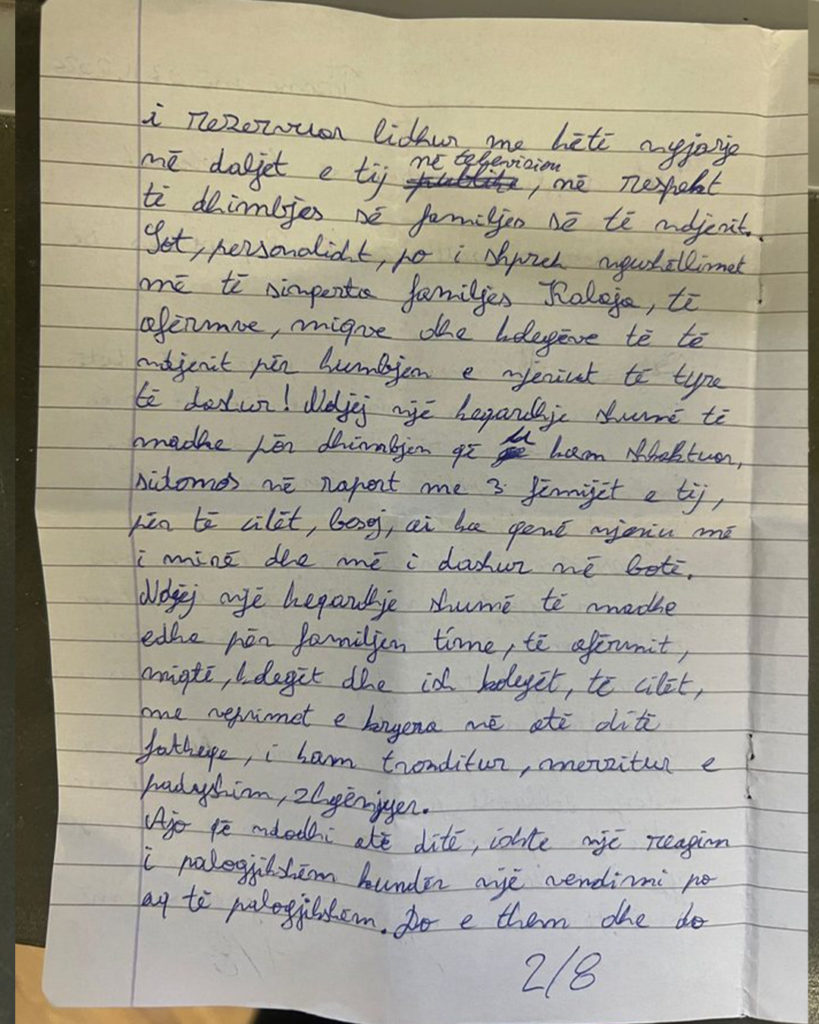 i rezervuar lidhur me këtë ngjarje
në daljet e tij në television
publike, në respekt
të dhimbjes së familjes së të ndjerit.
Sot, personalisht, po i shpreh ngushëllimet
më të sinqerta familjes Kalaja, të
afërmve, miqve dhe kolegëve të të
ndjerit për humbjen e njeriut të tyre
të dashur! Ndjej një keqardhje shumë të
madhe për dhimbjen që u kam shkaktuar,
sidomos në raport me 3 fëmijët e tij,
për të cilët, besoj, ai ka qenë njeriu më
i mirë dhe më i dashur në botë.
Ndjej një keqardhje shumë të madhe
edhe për familjen time, të afërmit,
miqtë, kolegët dhe ish kolegët, të cilët,
me veprimet e kryera në atë ditë
fatkeqe, i kam tronditur, mërzitur e
padyshim, zhgënjyer.
Ajo që ndodhi atë ditë, ishte një reagim
i palogjikshëm kundër një vendimi po
aq të palogjikshëm. Do e them dhe do
2/8